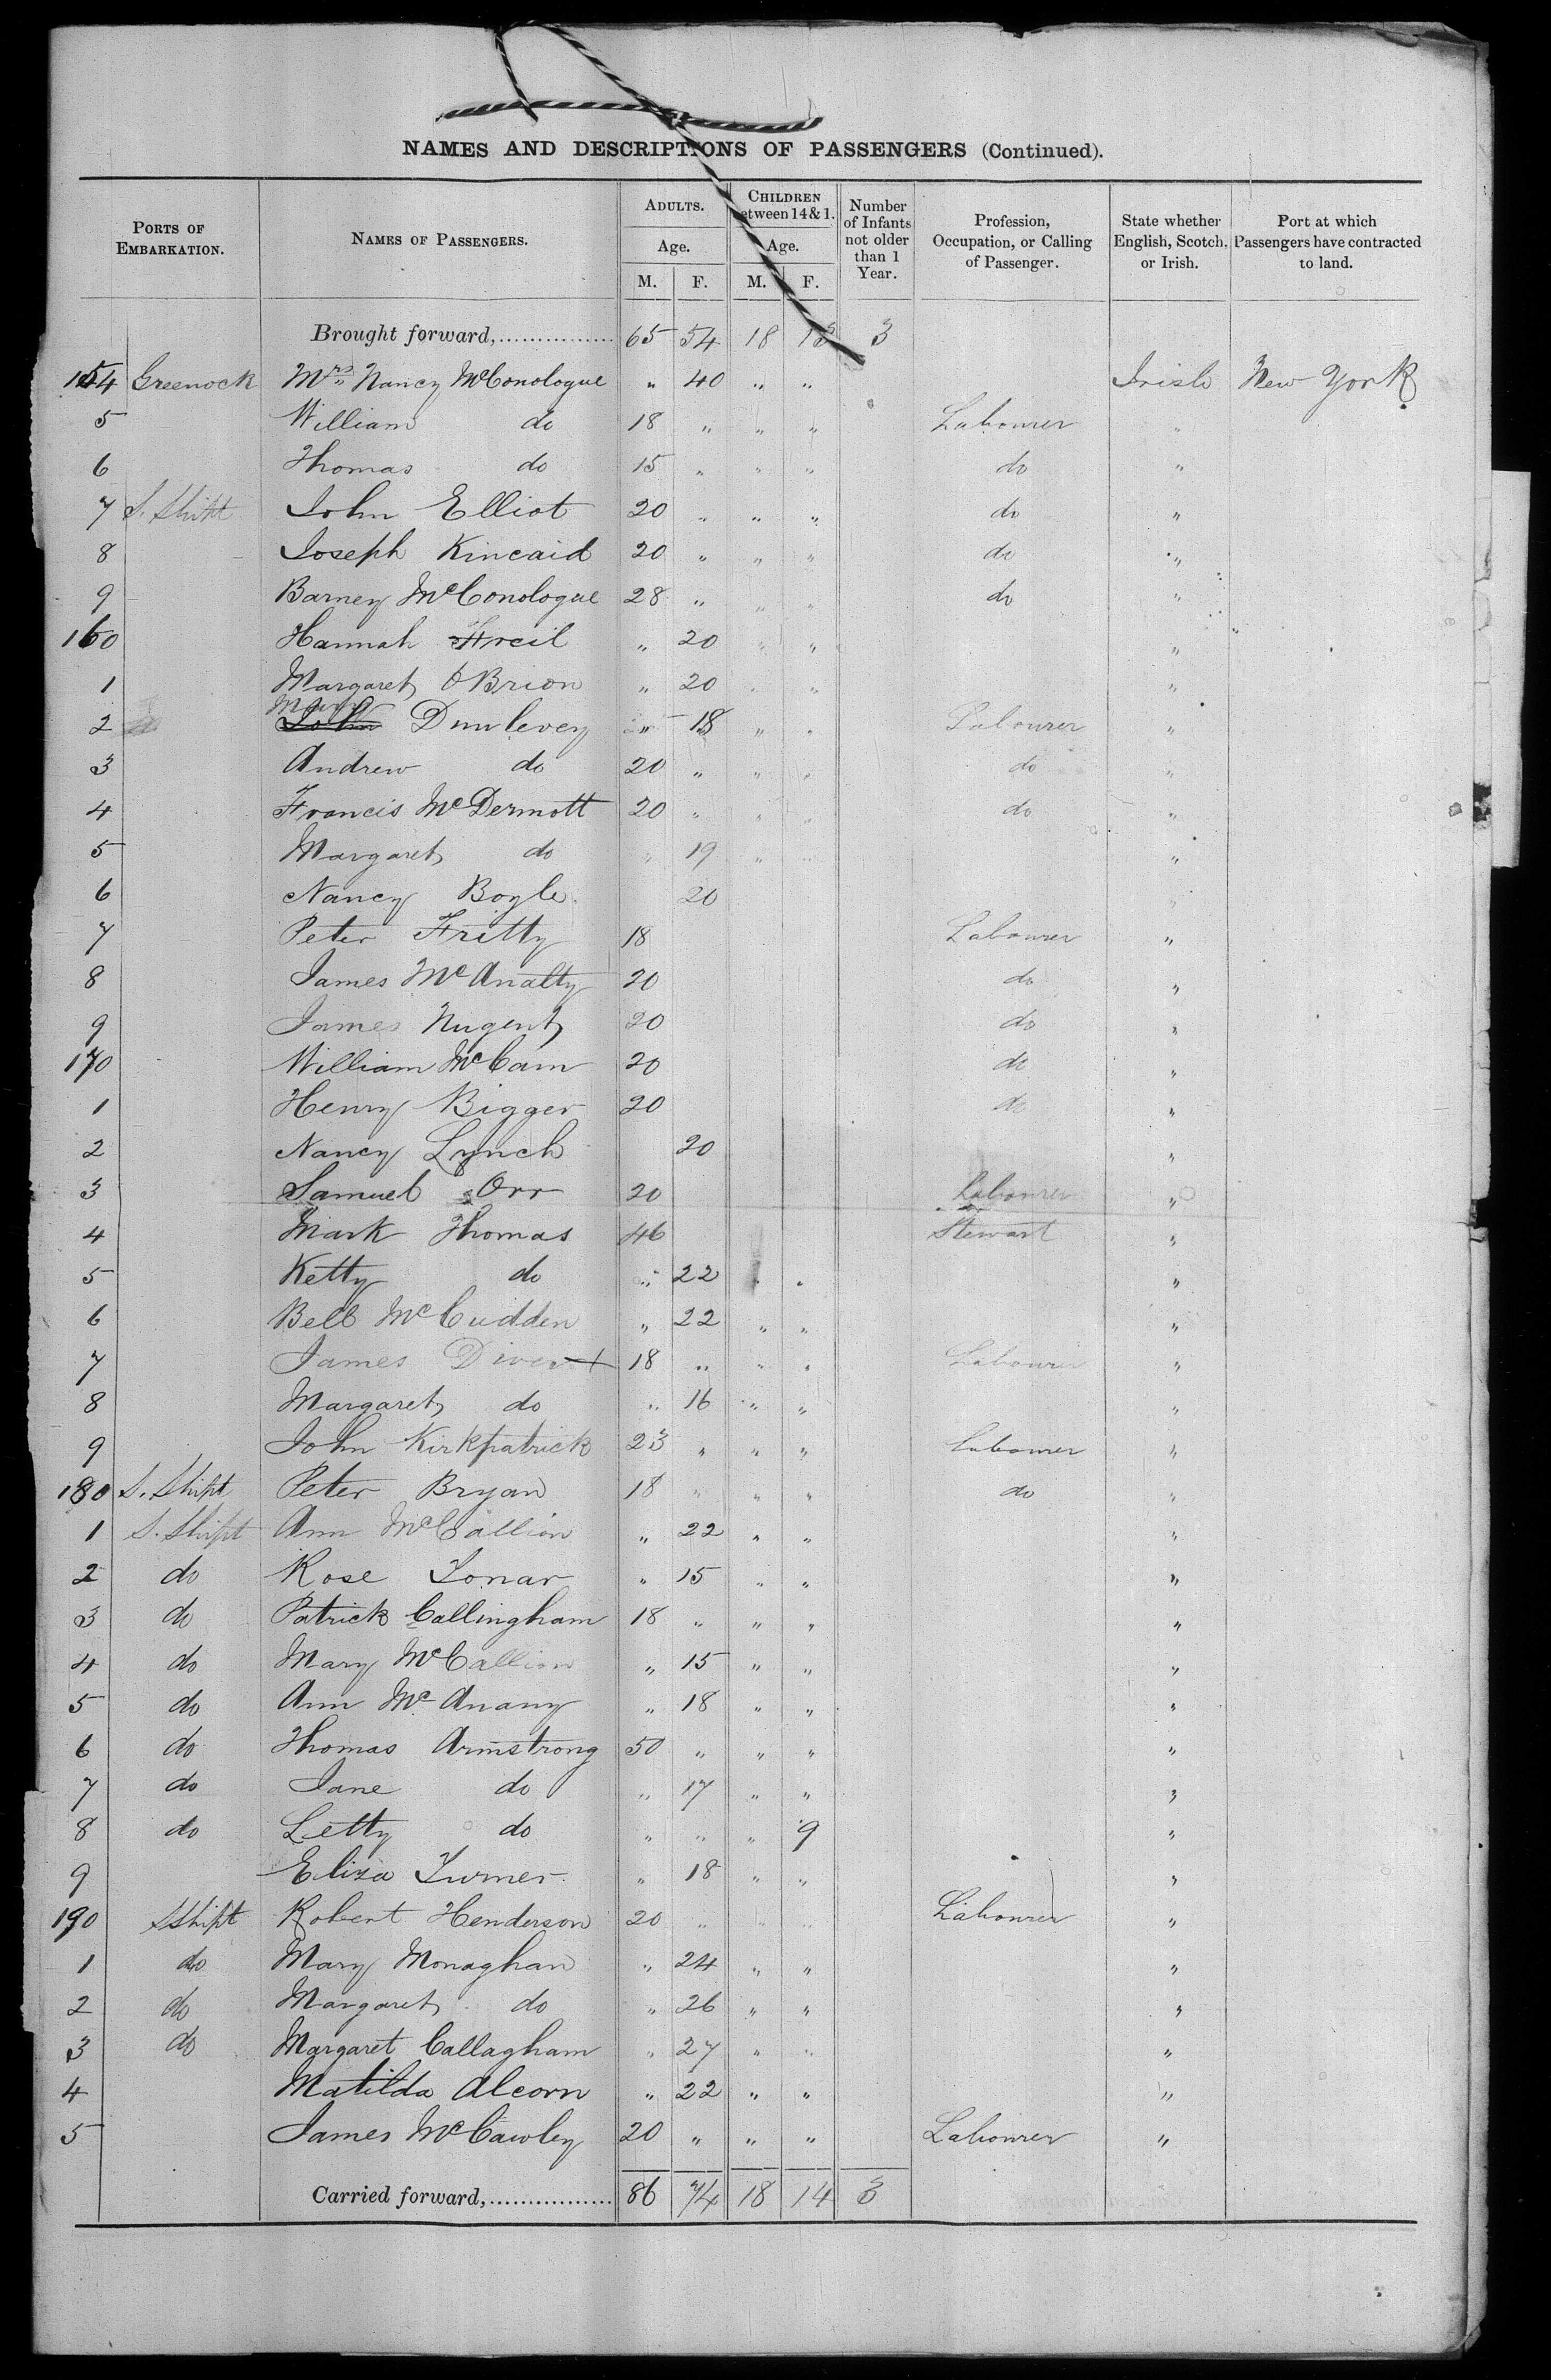 NAMES AND DESCRIPTIONS OF PASSENGERS (Continued).
PORTS OF EMBARKATION. NAMES OF PASSENGERS. ADULTS. Age. M. F. CHILDREN between 14 & 1. Age. M. F. Number of Infants not older than 1 Year. Profession, Occupation, or Calling of Passenger. State whether English, Scotch, or Irish. Port at which Passengers have contracted to land.
Brought forward, 65 54 18 13 3
154 Greenock Mrs Nancy McConologue " 40 " " Irish New York
5 William do 18 " " " Labourer "
6 Thomas do 15 " " " do "
7 S. Shipt John Elliot 20 " " " do "
8 Joseph Kincaid 20 " " " do "
9 Barney McConologue 28 " " " do "
160 Hannah Freil " 20 " " "
1 Margaret O'Brion " 20 " " "
2 John Dunlevey " 18 " " Labourer "
3 Andrew do 20 " " " do "
4 Francis McDermott 20 " " " do "
5 Margaret do " 19 " " "
6 Nancy Boyle 20 "
7 Peter Fritty 18 Labourer "
8 James McAnalty 20 do "
9 James Nugent 20 do "
170 William McCam 20 do "
1 Henry Bigger 20 do "
2 Nancy Lynch 20 "
3 Samuel Orr 20 Labourer "
4 Mark Thomas 46 Stewart "
5 Ketty do " 22 " " "
6 Bell McCudden " 22 " " "
7 James Diver 18 " " " Labourer "
8 Margaret do " 16 " " "
9 John Kirkpatrick 23 " " " Labourer "
180 S. Shipt Peter Bryan 18 " " " do "
1 S. Shipt Ann McCallion " 22 " " "
2 do Rose Tonar " 15 " " "
3 do Patrick Callingham 18 " " " "
4 do Mary McCallion " 15 " " "
5 do Ann McAnany " 18 " " "
6 do Thomas Armstrong 50 " " " "
7 do Jane do " 17 " " "
8 do Letty do " " " 9 "
9 Eliza Turner " 18 " " "
190 S Shipt Robert Henderson 20 " " " Labourer "
1 do Mary Monaghan " 24 " " "
2 do Margaret do " 26 " " "
3 do Margaret Callagham " 27 " " "
4 Matilda Alcorn " 22 " " "
5 James McCawley 20 " " " Labourer "
Carried forward, 86 74 18 14 3